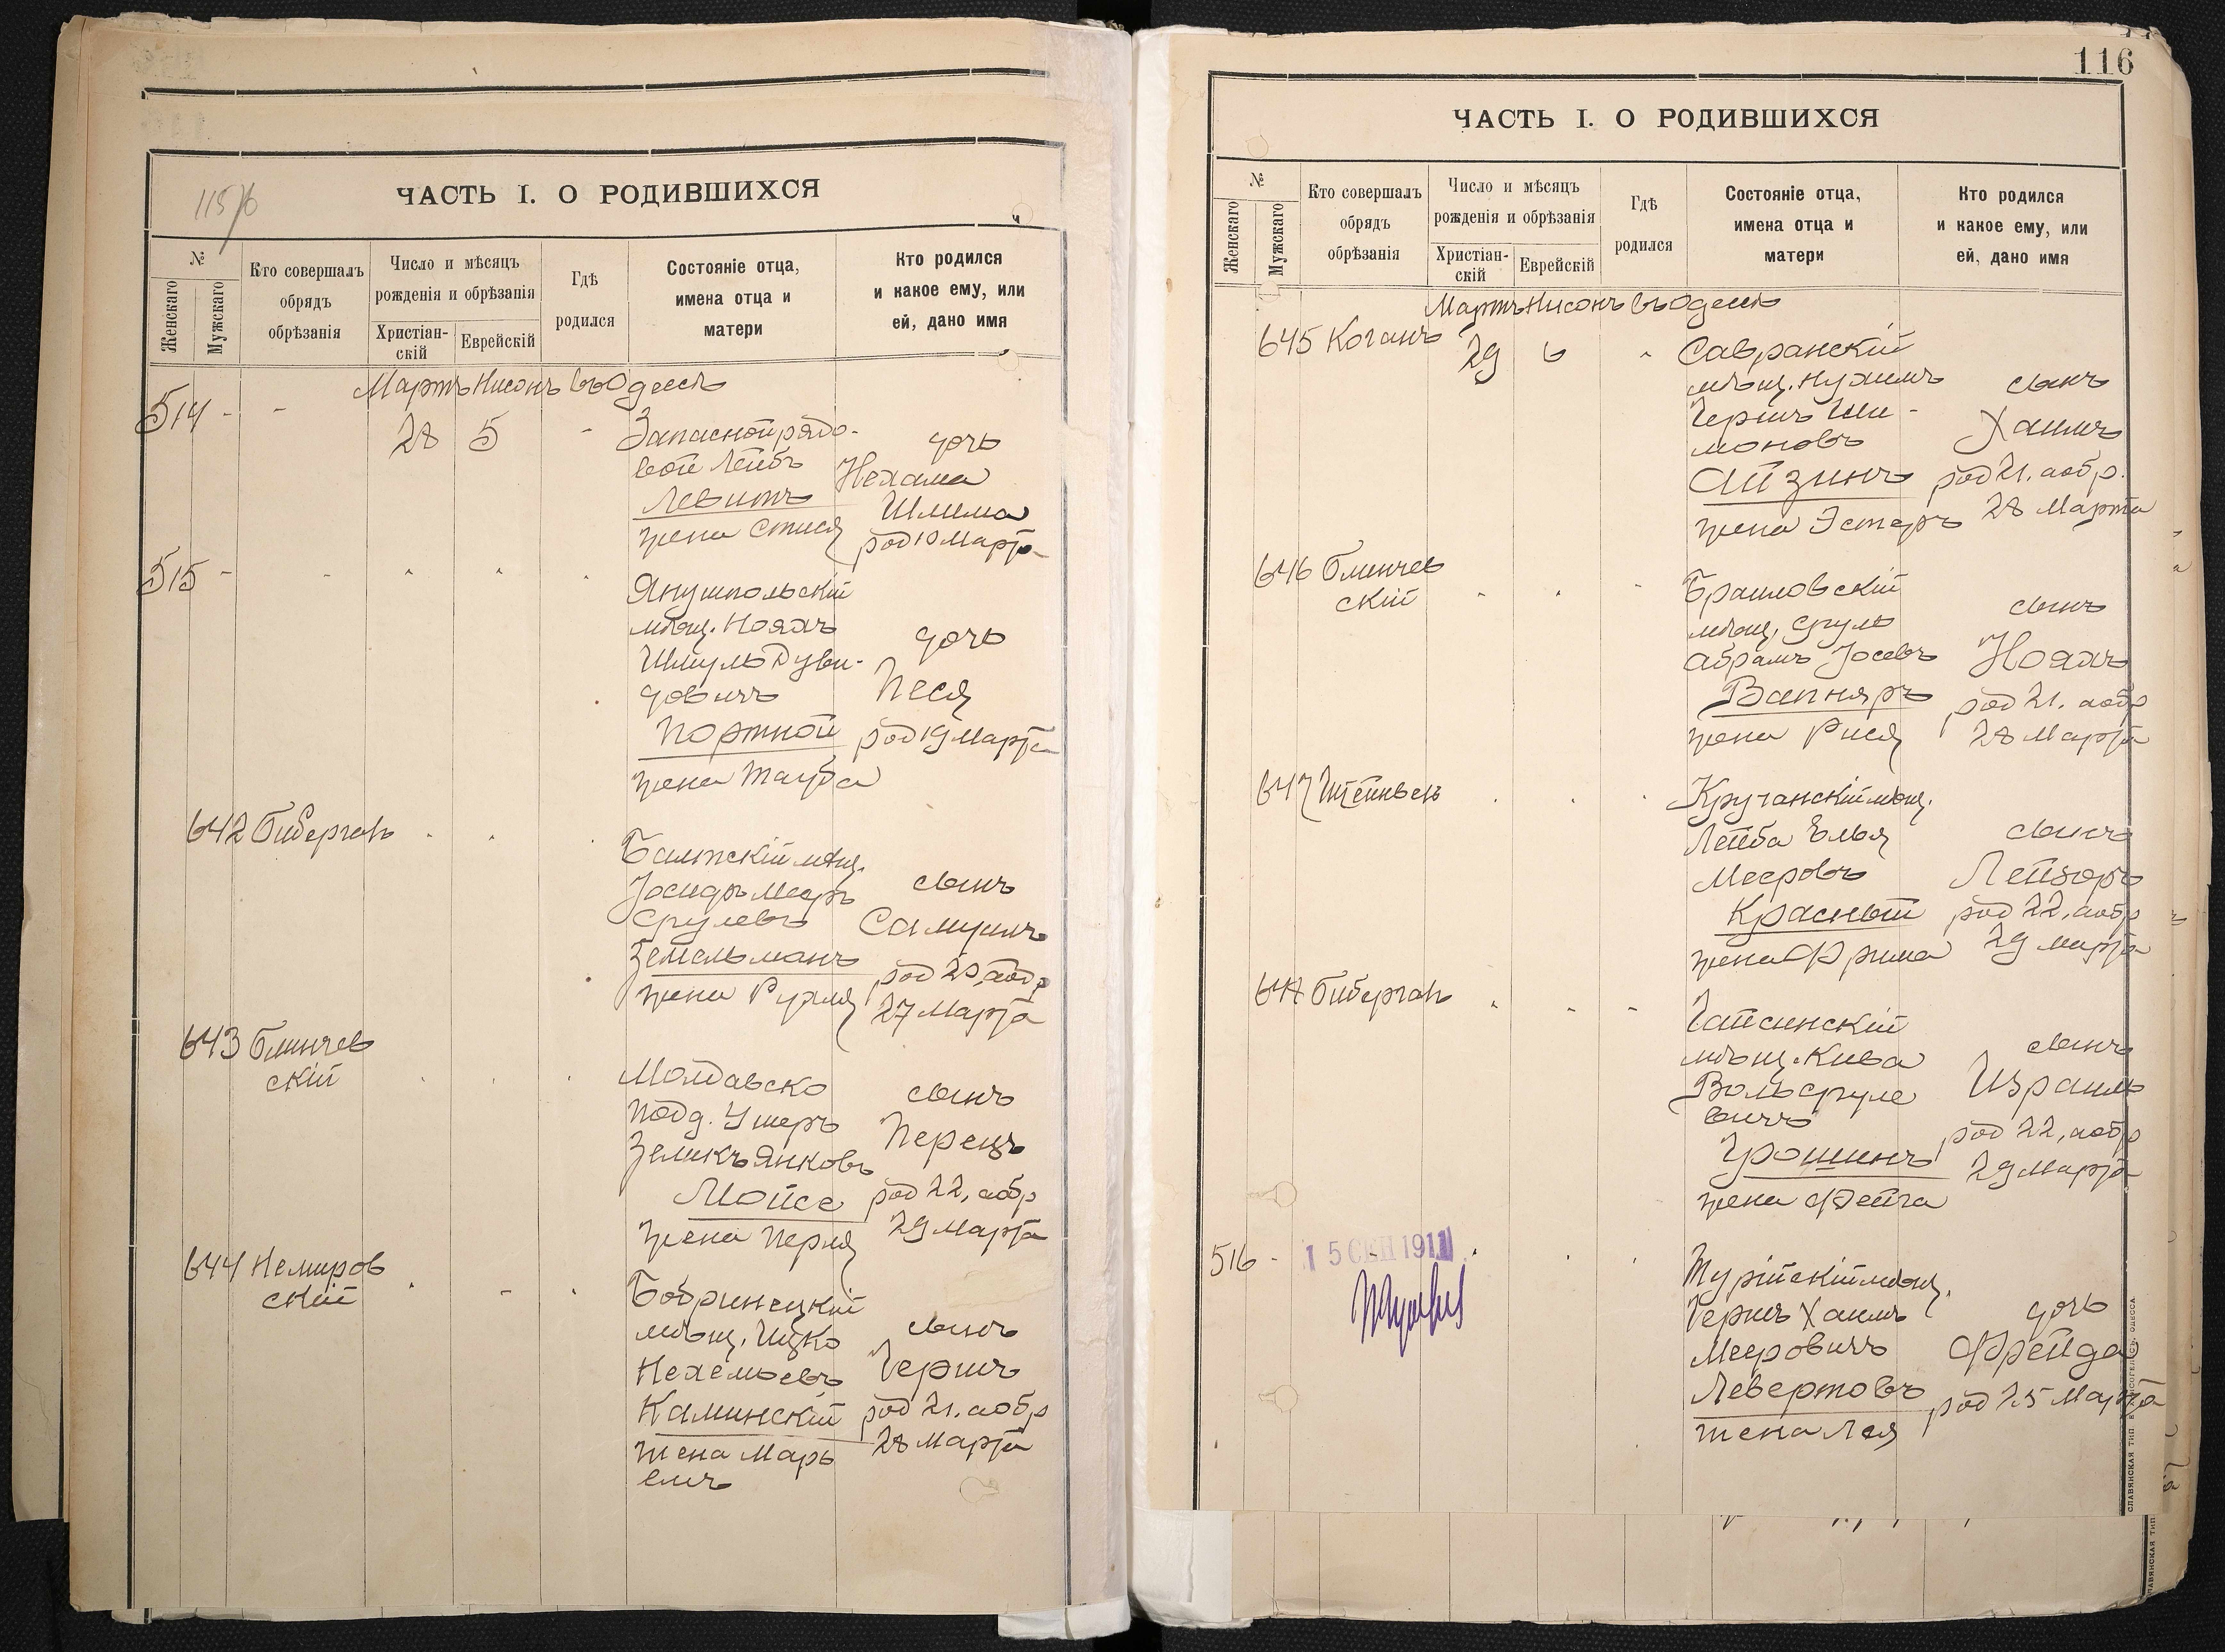 115/6
ЧАСТЬ I. О РОДИВШИХСЯ
№
Женскаго
Мужскаго
Кто совершалъ
обрядъ
обрѣзанія
Число и мѣсяцъ
рожденія и обрѣзанія
Христіан-
скій
Еврейскій
Гдѣ
родился
Состояніе отца,
имена отца и
матери
Кто родился
и какое ему, или
ей, дано имя
Мартъ Нисонъ въ Одессѣ
514 - -
28 5 -
Запасной рядо-
вой Лейбъ
Левитъ
жена Стися
дочь
Нехама
Шлима
род 19 Марта
515 - -
Янушпольскій
мѣщ. Нояхъ
Шмуль Дуви-
довичъ
Портной
жена Тауба
дочь
Песя
род 19 Марта
642 Биберганъ
Балтскій мѣщ.
Іосифъ Мееръ
Срулевъ
Зейгельманъ
жена Рухля
сынъ
Самуилъ
род 20, а обр
27 Марта
643 Блинчев
скій
Молдавско
подд. Ушеръ
Зеликъ Янковъ
Мойсе
жена Перля
сынъ
Перецъ
род 22, а обр
29 Марта
644 Немиров
скій
Бобринецкій
мѣщ. Ицко
Нехемьевъ
Каминскій
жена Марь
емъ
сынъ
Гершъ
род 21. а обр
28 Марта
116
ЧАСТЬ I. О РОДИВШИХСЯ
№
Женскаго
Мужскаго
Кто совершалъ
обрядъ
обрѣзанія
Число и мѣсяцъ
рожденія и обрѣзанія
Христіан-
скій
Еврейскій
Гдѣ
родился
Состояніе отца,
имена отца и
матери
Кто родился
и какое ему, или
ей, дано имя
Мартъ Нисонъ въ Одессѣ
645 Коганъ
29 6
Савранскій
мѣщ. Нухимъ
Гершъ Ши-
моновъ
Айзинъ
жена Эстеръ
сынъ
Хаимъ
род 21. а обр.
28 Марта
646 Блинчев
скій
Браиловскій
мѣщ. Сруль
Абрамъ Іосевъ
Вапняръ
жена Рися
сынъ
Нояхъ
род 21. а обр
28 Марта
647 Штейнвень
Кручанскій мѣщ.
Лейба Элья
Мееровъ
Красный
жена Фрима
сынъ
Лейзоръ
род 22, а обр
29 Марта
648 Биберганъ
Гайсинскій
мѣщ. Кива
Воль Сруле
вичъ
Грошинъ
жена Фейга
сынъ
Израиль
род 22, а обр
29 Марта
516 -
15 СЕН 1911
Турійскій мѣщ.
Гершъ Хаимъ
Мееровичъ
Левертовъ
жена Лея
дочь
Фрейда
род 25 Марта
СЛАВЯНСКАЯ ТИП.
ОДЕССА